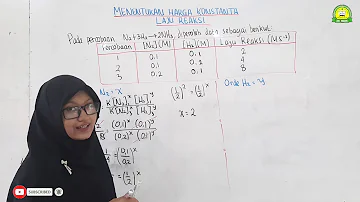 MENENTUKAN HARGA KONSTANTA
LAJU REAKSI
Pada percobaan N₂+3H₂→2NH₃ diperoleh data sebagai berikut:
Percobaan [N₂](M) [H₂](M) Laju Reaksi (M s⁻¹)
1 0.1 0.1 2
2 0.1 4
3 0.2 0.1 8
N₂ = x
K[N₂]ˣ [H₂]ʸ
K[N₂]ˣ [H₂]ʸ
(0,1)ˣ (0,1)ʸ
(0,2)ˣ (0,1)ʸ
= (0,1/0,2)ˣ
= (1/2)ˣ
(1/2)² = (1/2)ˣ
x = 2
Orde H₂ = y
SUBSCRIBED